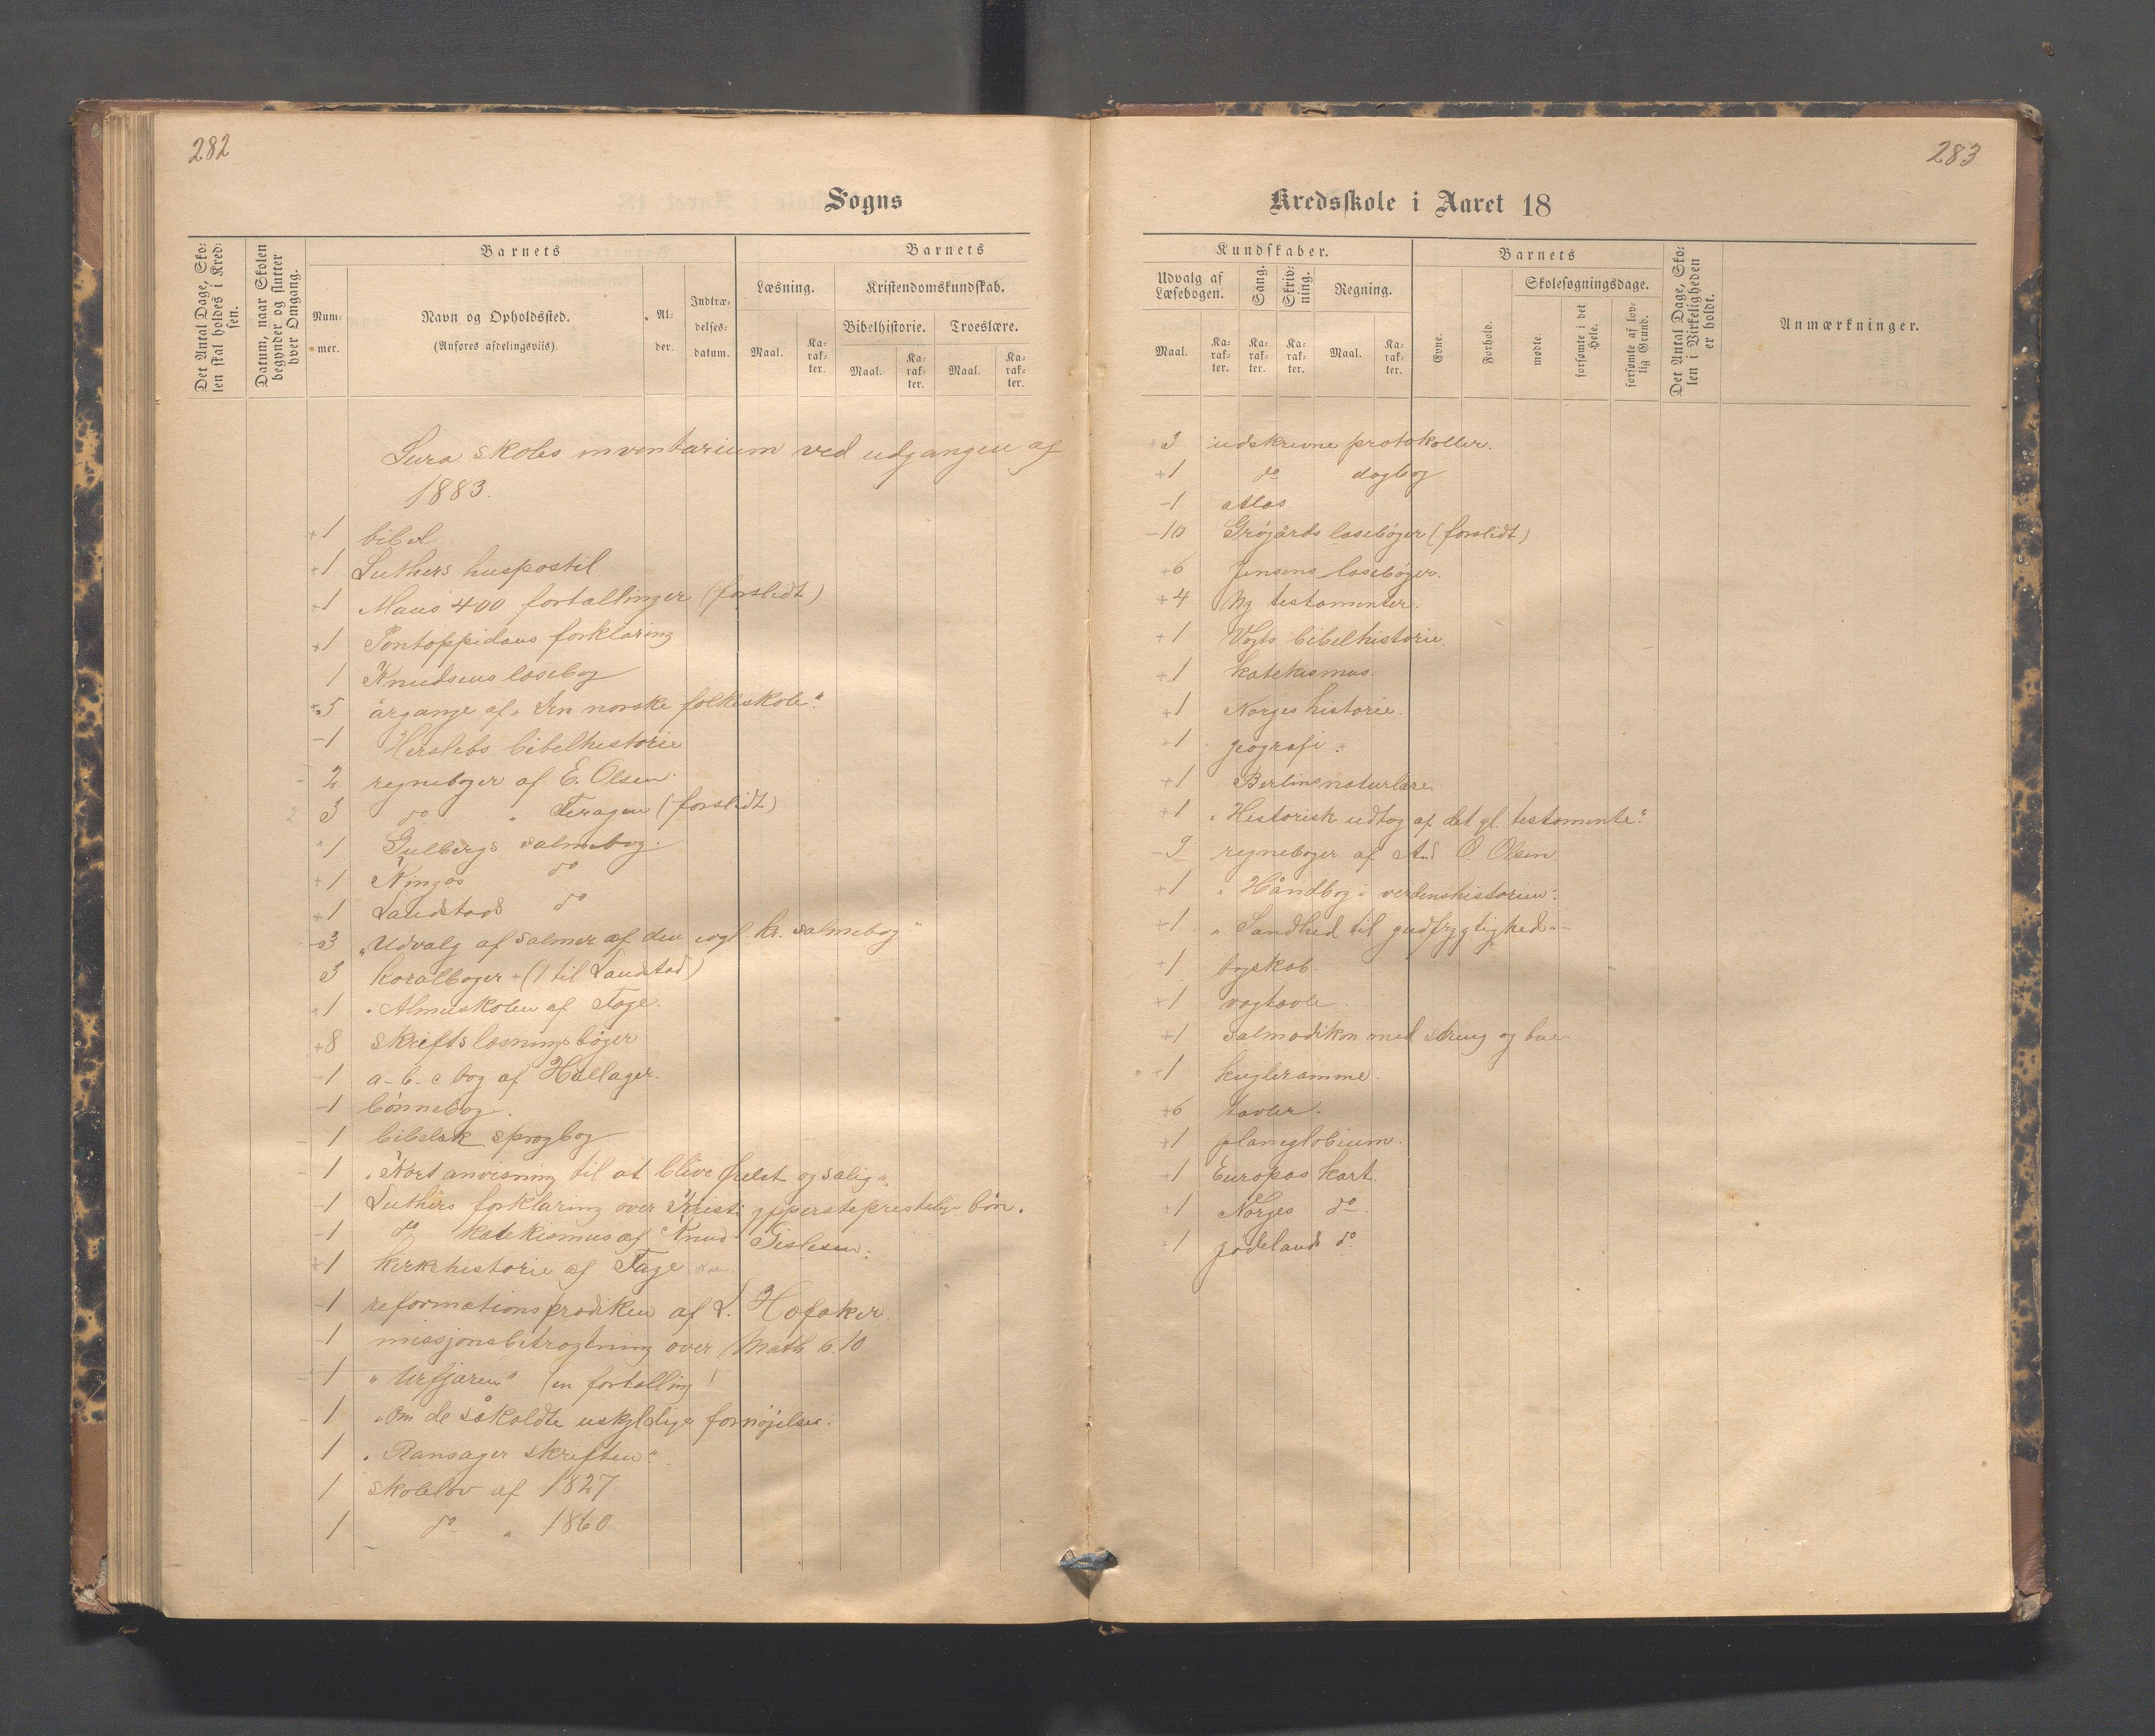 282
Sogns
Det Antal Dage, Sko-
len skal holdes i Kred-
sen.
Datum, naar Skolen
begynder og slutter
hver Omgang.
Barnets
Num-
mer.
Navn og Opholdssted.
(Anføres afdelingsviis).
Al-
der.
Indtræ-
delses-
datum.
Barnets
Læsning.
Kristendomskundskab.
Bibelhistorie.
Troeslære.
Maal.
Ka-
rak-
ter.
Maal.
Ka-
rak-
ter.
Maal.
Ka-
rak-
ter.
Lura skoles inventarium ved udgangen af
1883.
+1 bibel
+1 Luthers huspostil
+1 Maus 400 fortællinger (forslidt)
+1 Pontoppidans forklaring
1 Knudsens læsebog
+5 årgange af „Den norske folkeskole“
-1 Herslebs bibelhistorie
- 2 regnebøger af E. Olsen
2 3 do „ Feragen (forslidt)
+1 Gulbergs salmebog.
+1 Kingos do
+1 Landstads do
-3 „Udvalg af salmer af den evgl. kr. salmebog“
3 koralbøger (1 til Landstad)
+1 „Almueskolen af Tage.
+8 skriftslæsningsbøger
-1 a-b-c bog af Hallager.
-1 bønnebog.
- 1 bibelsk sprogbog
- 1 „Kort anvisning til at blive frelst og salig“.
-1 Luthers forklaring over Kristi yppersteprestelige bøn.
-1 do katekismus af Knud Gislesen.
+1 kirkehistorie af Tage
-1 reformationsprædiken af L. Hofaker.
-1 missjonsbetragtning over Math 6.10
-1 „Urfjæren“ (en fortælling)
- 1 „Om de såkaldte uskyldige fornøjelser.
1 „Ransager skriften“
1 skolelov af 1827
1 do „ 1860
283
Kredsskole i Aaret 18
Kundskaber.
Udvalg af
Læsebogen.
Sang.
Skriv-
ning.
Regning.
Maal.
Ka-
rak-
ter.
Ka-
rak-
ter.
Ka-
rak-
ter.
Maal.
Ka-
rak-
ter.
Barnets
Evne.
Forhold.
Skolesøgningsdage.
mødte.
forsømte i det
Hele.
forsømte af lov-
lig Grund.
Det Antal Dage, Sko-
len i Virkeligheden
er holdt.
Anmærkninger.
3 udskrevne protokoller.
+1 do dagbog
-1 atlas
-10 Grøgårds læsebøger (forslidt)
+6 Jensens læsebøger.
+4 Ny testamenter.
+1 Vogts bibelhistorie.
+1 katekismus.
+1 Norges historie.
+1 geografi.
+1 Berlins naturlære.
+1 „Historisk udtog af det gl. testamente“
-9 regnebøger af O. Olsen.
+1 „Håndbog i verdenshistorien“
+1 „Sandhed til gudfrygtighed“
+1 bogskab.
+1 vægtavle.
+1 salmodikon med streng og bue
+1 kugleramme.
+6 tavler.
+1 planiglobium.
+1 Europas kart.
+1 Norges do.
+1 jødelands do.